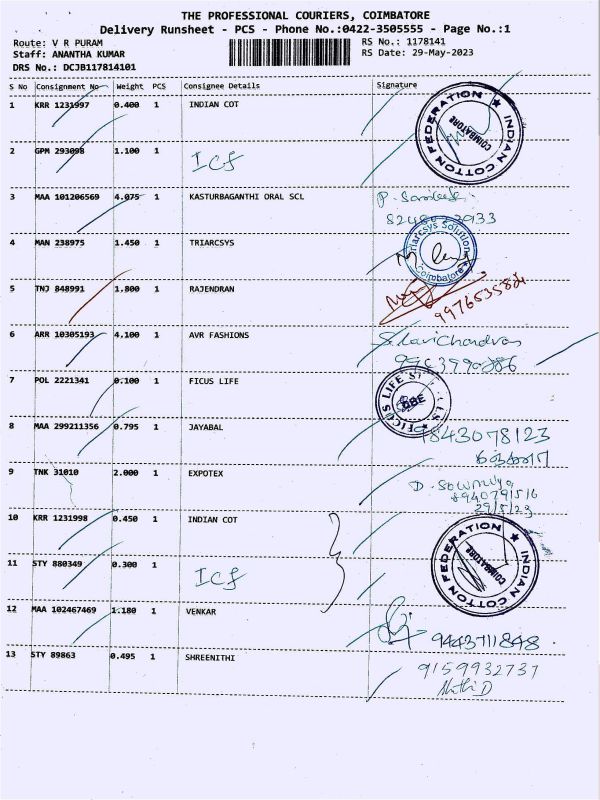 THE PROFESSIONAL COURIERS, COIMBATORE
Delivery Runsheet - PCS - Phone No.:0422-3505555 - Page No.:1
Route: V R PURAM
RS No.: 1178141
Staff: ANANTHA KUMAR
RS Date: 29-May-2023
DRS No.: DCJB117814101
S No Consignment No Weight PCS Consignee Details Signature
1 KRR 1231997 0.400 1 INDIAN COT
INDIAN COTTON FEDERATION ★ COIMBATORE
2 GPM 293098 1.100 1 ICF
3 MAA 101206569 4.075 1 KASTURBAGANTHI ORAL SCL
4 MAN 238975 1.450 1 TRIARCSYS
Triarcsys Solution Coimbatore
5 TNJ 848991 1.800 1 RAJENDRAN
997653582
6 ARR 10305193 4.100 1 AVR FASHIONS
S. Ravichandran
7 POL 2221341 0.100 1 FICUS LIFE
8 MAA 299211356 0.795 1 JAYABAL
9843078123
9 TNK 31010 2.000 1 EXPOTEX
D. Sowmiya
8940791516
29/5/23
10 KRR 1231998 0.450 1 INDIAN COT
INDIAN COTTON FEDERATION ★ COIMBATORE
11 STY 880349 0.300 1 ICF
12 MAA 102467469 1.180 1 VENKAR
9443711848
13 STY 89863 0.495 1 SHREENITHI
9159932737